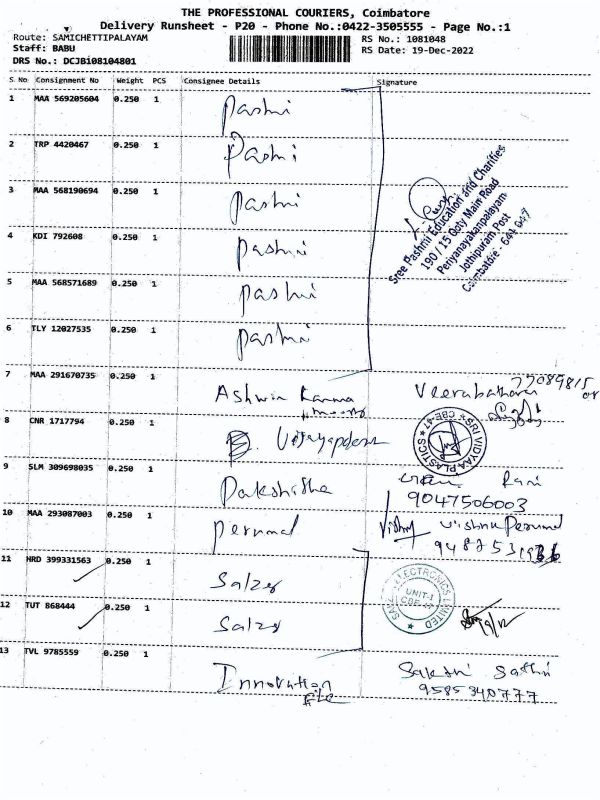 THE PROFESSIONAL COURIERS, Coimbatore
Delivery Runsheet - P20 - Phone No.:0422-3505555 - Page No.:1
Route: SAMICHETTIPALAYAM
RS No.: 1081048
Staff: BABU
RS Date: 19-Dec-2022
DRS No.: DCJBi08104801
S No Consignment No Weight PCS Consignee Details Signature
1 MAA 569205604 0.250 1 Pashmi
2 TRP 4420467 0.250 1 Pashmi
3 MAA 568190694 0.250 1 Pashmi
4 KDI 792608 0.250 1 Pashmi
5 MAA 568571689 0.250 1 Pashmi
6 TLY 12027535 0.250 1 Pashmi
Sree Pashmi Education and Charities
190 / 15 Ooty Main Road
Periyanayakanpalayam
Jothipuram Post
Coimbatore - 641 047
7 MAA 291670735 0.250 1 Ashwin
8 CNR 1717794 0.250 1
SRI VIDYAA PLASTICS ★ CBE-47 ★
9 SLM 309698035 0.250 1 Rani
9047506003
10 MAA 293087003 0.250 1 Perumal Vishnu Perumal
11 HRD 399331563 0.250 1 Salzer
12 TUT 868444 0.250 1 Salzer
ELECTRONICS LIMITED
UNIT-1
CBE-47
13 TVL 9785559 0.250 1 Innovation Sakthi
9585340777